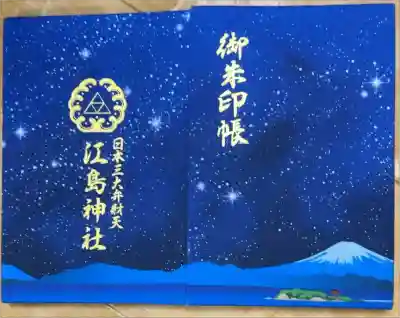 御朱印帳
日本三大弁財天
江島神社